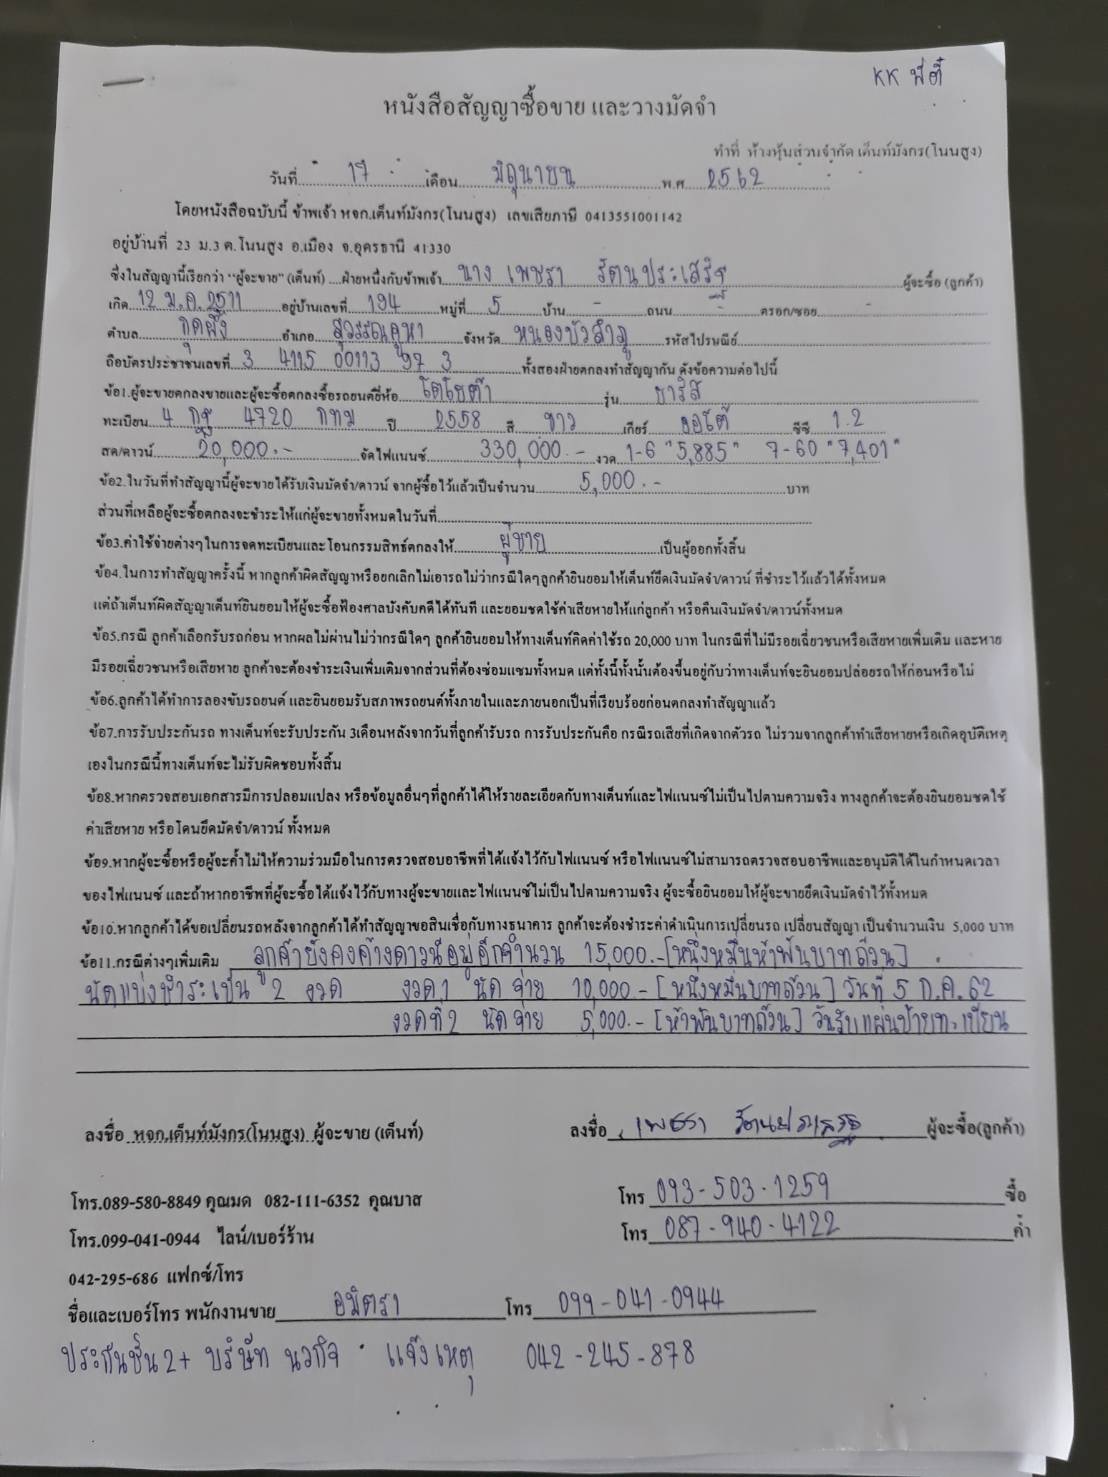 KK พี่ตี๋
หนังสือสัญญาซื้อขาย และวางมัดจำ
ทำที่ ห้างหุ้นส่วนจำกัด เต็นท์มังกร(โนนสูง)
วันที่ 17 เดือน มิถุนายน พ.ศ 2562
โดยหนังสือฉบับนี้ ข้าพเจ้า หจก.เต็นท์มังกร(โนนสูง) เลขเสียภาษี 0413551001142
อยู่บ้านที่ 23 ม.3 ต.โนนสูง อ.เมือง จ.อุดรธานี 41330
ซึ่งในสัญญานี้เรียกว่า "ผู้จะขาย" (เต็นท์) ....ฝ่ายหนึ่งกับข้าพเจ้า นาง เพชรา รัตนประเสริฐ ผู้จะซื้อ (ลูกค้า)
เกิด 12 ม.ค. 2511 อยู่บ้านเลขที่ 194 หมู่ที่ 5 บ้าน - ถนน - ตรอก/ซอย
ตำบล กุดผึ้ง อำเภอ สุวรรณคูหา จังหวัด หนองบัวลำภู รหัสไปรษณีย์
ถือบัตรประชาชนเลขที่ 3 4115 00113 97 3 ทั้งสองฝ่ายตกลงทำสัญญากัน ดังข้อความต่อไปนี้
ข้อ1.ผู้จะขายตกลงขายและผู้จะซื้อตกลงซื้อรถยนต์ยี่ห้อ โตโยต้า รุ่น ยาริส
ทะเบียน 4 กฐ 4720 กทม ปี 2558 สี ขาว เกียร์ ออโต้ ซีซี 1.2
สด/ดาวน์ 20,000.- จัดไฟแนนซ์ 330,000.- งวด 1-6 "5,885" 7-60 "7,401"
ข้อ2.ในวันที่ทำสัญญานี้ผู้จะขายได้รับเงินมัดจำ/ดาวน์ จากผู้ซื้อไว้แล้วเป็นจำนวน 5,000.- บาท
ส่วนที่เหลือผู้จะซื้อตกลงจะชำระให้แก่ผู้จะขายทั้งหมดในวันที่
ข้อ3.ค่าใช้จ่ายต่างๆในการจดทะเบียนและโอนกรรมสิทธ์ตกลงให้ ผู้ขาย เป็นผู้ออกทั้งสิ้น
ข้อ4.ในการทำสัญญาครั้งนี้ หากลูกค้าผิดสัญญาหรือยกเลิกไม่เอารถไม่ว่ากรณีใดๆลูกค้ายินยอมให้เต็นท์ยึดเงินมัดจำ/ดาวน์ ที่ชำระไว้แล้วได้ทั้งหมด
แต่ถ้าเต็นท์ผิดสัญญาเต็นท์ยินยอมให้ผู้จะซื้อฟ้องศาลบังคับคดีได้ทันที และยอมชดใช้ค่าเสียหายให้แก่ลูกค้า หรือคืนเงินมัดจำ/ดาวน์ทั้งหมด
ข้อ5.กรณี ลูกค้าเลือกรับรถก่อน หากผลไม่ผ่านไม่ว่ากรณีใดๆ ลูกค้ายินยอมให้ทางเต็นท์คิดค่าใช้รถ 20,000 บาท ในกรณีที่ไม่มีรอยเฉี่ยวชนหรือเสียหายเพิ่มเติม และหาย
มีรอยเฉี่ยวชนหรือเสียหาย ลูกค้าจะต้องชำระเงินเพิ่มเติมจากส่วนที่ต้องซ่อมแซมทั้งหมด แต่ทั้งนี้ทั้งนั้นต้องขึ้นอยู่กับว่าทางเต็นท์จะยินยอมปล่อยรถให้ก่อนหรือไม่
ข้อ6.ลูกค้าได้ทำการลองขับรถยนต์ และยินยอมรับสภาพรถยนต์ทั้งภายในและภายนอกเป็นที่เรียบร้อยก่อนตกลงทำสัญญาแล้ว
ข้อ7.การรับประกันรถ ทางเต็นท์จะรับประกัน 3เดือนหลังจากวันที่ลูกค้ารับรถ การรับประกันคือ กรณีรถเสียที่เกิดจากตัวรถ ไม่รวมจากลูกค้าทำเสียหายหรือเกิดอุบัติเหตุ
เองในกรณีนี้ทางเต็นท์จะไม่รับผิดชอบทั้งสิ้น
ข้อ8.หากตรวจสอบเอกสารมีการปลอมแปลง หรือข้อมูลอื่นๆที่ลูกค้าได้ให้รายละเอียดกับทางเต็นท์และไฟแนนซ์ไม่เป็นไปตามความจริง ทางลูกค้าจะต้องยินยอมชดใช้
ค่าเสียหาย หรือโดนยึดมัดจำ/ดาวน์ ทั้งหมด
ข้อ9.หากผู้จะซื้อหรือผู้จะค้ำไม่ให้ความร่วมมือในการตรวจสอบอาชีพที่ได้แจ้งไว้กับไฟแนนซ์ หรือไฟแนนซ์ไม่สามารถตรวจสอบอาชีพและอนุมัติได้ในกำหนดเวลา
ของไฟแนนซ์ และถ้าหากอาชีพที่ผู้จะซื้อได้แจ้งไว้กับทางผู้จะขายและไฟแนนซ์ไม่เป็นไปตามความจริง ผู้จะซื้อยินยอมให้ผู้จะขายยึดเงินมัดจำไว้ทั้งหมด
ข้อ10.หากลูกค้าได้ขอเปลี่ยนรถหลังจากลูกค้าได้ทำสัญญาขอสินเชื่อกับทางธนาคาร ลูกค้าจะต้องชำระค่าดำเนินการเปลี่ยนรถ เปลี่ยนสัญญา เป็นจำนวนเงิน 5,000 บาท
ข้อ11.กรณีต่างๆเพิ่มเติม ลูกค้ายังคงค้างดาวน์อยู่อีกจำนวน 15,000.- [หนึ่งหมื่นห้าพันบาทถ้วน]
นัดแบ่งชำระเป็น 2 งวด งวด1 นัดจ่าย 10,000.- [หนึ่งหมื่นบาทถ้วน] วันที่ 5 ก.ค. 62
งวดที่ 2 นัดจ่าย 5,000.- [ห้าพันบาทถ้วน] วันรับแผ่นป้ายทะเบียน
ลงชื่อ หจก.เต็นท์มังกร(โนนสูง) ผู้จะขาย (เต็นท์) ลงชื่อ เพชรา รัตนประเสริฐ ผู้จะซื้อ(ลูกค้า)
โทร.089-580-8849 คุณมด 082-111-6352 คุณบาส โทร 093-503-1259 ซื้อ
โทร.099-041-0944 ไลน์/เบอร์ร้าน โทร 087-940-4122 ค้ำ
042-295-686 แฟกซ์/โทร
ชื่อและเบอร์โทร พนักงานขาย อมิตรา โทร 099-041-0944
ประกันชั้น 2+ บริษัท นวกิจ แจ้งเหตุ 042-245-878